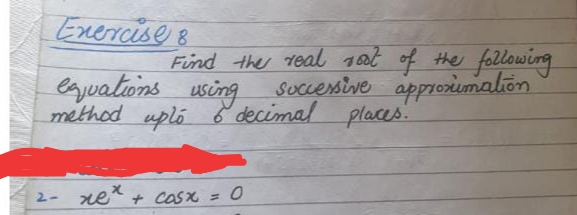 Exercise 8
Find the real root of the following
equations using successive approximation
method upto 6 decimal places.
2- xe^x + cosx = 0